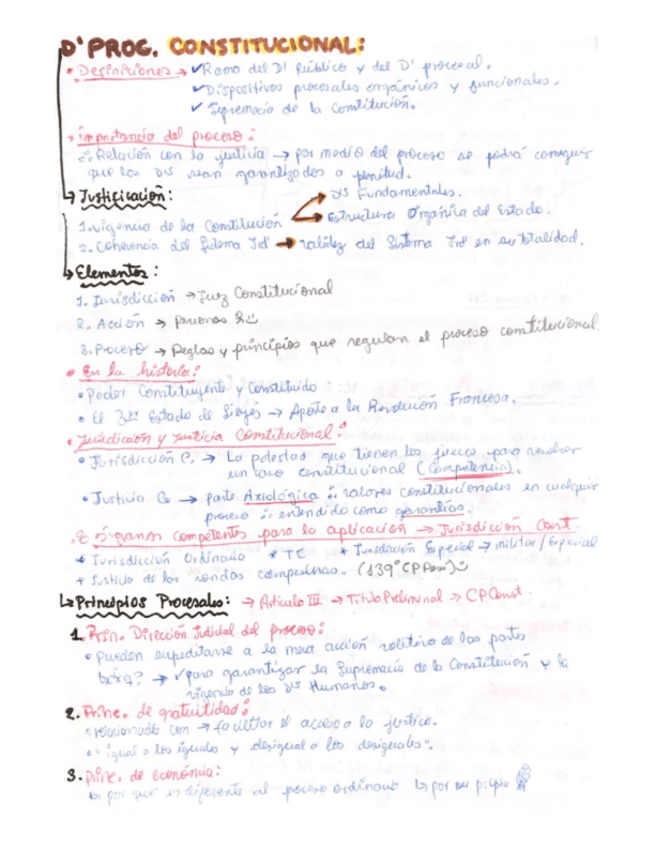 D' PROC. CONSTITUCIONAL:
• Definiciones → ✓ Rama del D' Público y del D' procesal.
✓ Dispositivos procesales orgánicos y funcionales.
✓ Supremacía de la Constitución.
• importancia del proceso:
Relación con la justicia → por medio del proceso se podrá conseguir
que los D's sean garantizados a plenitud.
↳ Justificación:
1. vigencia de la Constitución → D's Fundamentales.
→ Estructura Orgánica del Estado.
2. Coherencia del Sistema Jd' → validez del Sistema Jd' en su totalidad.
↳ Elementos:
1. Jurisdicción → Juez Constitucional
2. Acción → personas
3. Proceso → Reglas y principios que regulan el proceso constitucional
• En la historia:
• Poder Constituyente y Constituido
• El 3er Estado de Sieyés → Aporte a la Revolución Francesa.
• Jurisdicción y Justicia Constitucional:
• Jurisdicción C. → La potestad que tienen los jueces para resolver
un caso constitucional (Competencia).
• Justicia C. → parte Axiológica valores constitucionales en cualquier
proceso entendido como garantías.
órganos competentes para la aplicación → Jurisdicción Const.
* Jurisdicción Ordinaria * TC * Jurisdicción Especial → militar / Especial
* Justicia de las rondas campesinas. (139°
↳ Principios Procesales: → Artículo III → Título Preliminar → CP Const.
1. Prin. Dirección Judicial del proceso:
• Pueden supeditarse a la mera acción de las partes
→ ✓ para garantizar la Supremacía de la Constitución y la
vigencia de los D's Humanos.
2. Princ. de gratuidad:
• relacionado con → facilitar el acceso a la justicia.
• "igual a los iguales y desigual a los desiguales".
3. princ. de economía:
↳ por qué es diferente al proceso ordinario ↳ por su